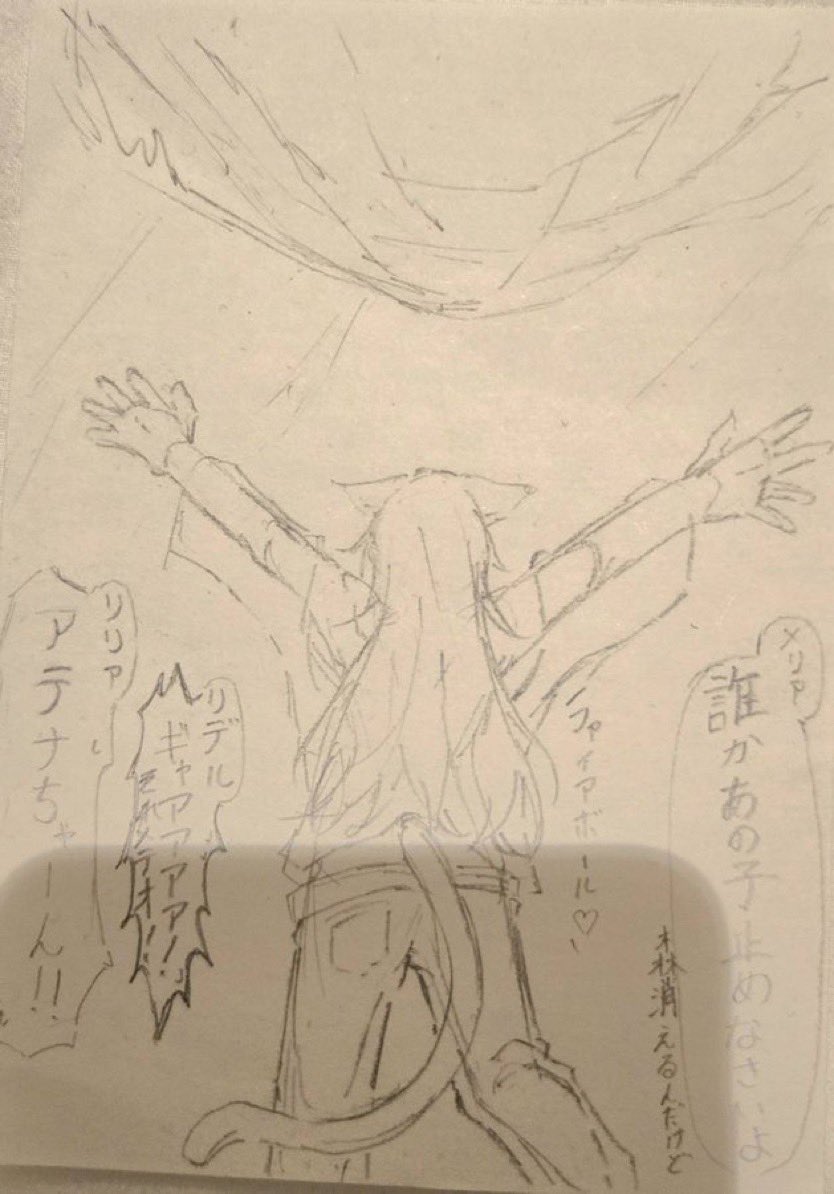 メリア
誰かあの子止めなさいよ
森消えるんだけど
ファイアボール♡
リデル
ギャアアアア!
それメテオ!!
リリア
アテナちゃーん!!